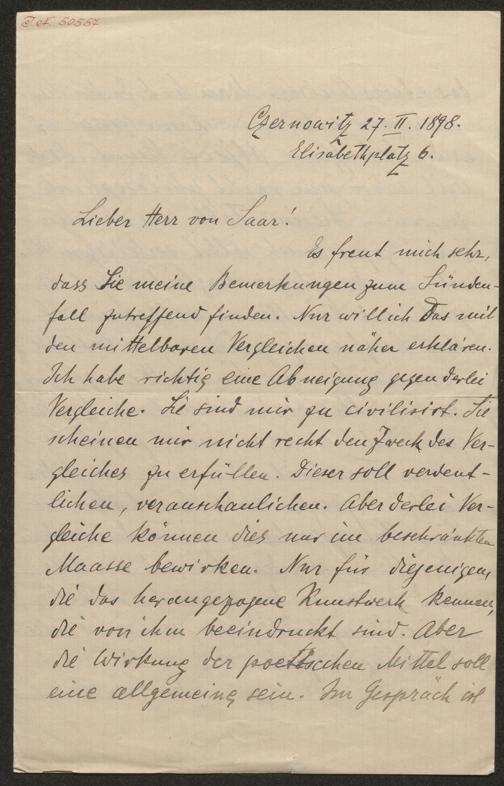 Czernowitz 27. II. 1898.
Elisabethplatz 6.
Lieber Herr von Saar!
Es freut mich sehr,
dass Sie meine Bemerkungen zum Sünden-
fall zutreffend finden. Nur will ich Das mit
den mittelbaren Vergleichen näher erklären.
Ich habe richtig eine Abneigung gegen derlei
Vergleiche. Sie sind mir zu civilisirt. Sie
scheinen mir nicht recht den Zweck des Ver-
gleiches zu erfüllen. Dieser soll verdeut-
lichen, veranschaulichen. Aber derlei Ver-
gleiche können dies nur im beschränkten
Maasse bewirken. Nur für diejenigen,
die das herangezogene Kunstwerk kennen,
die von ihm beeindruckt sind. Aber
die Wirkung der poetischen Mittel soll
eine allgemeine sein. Im Gespräch ist